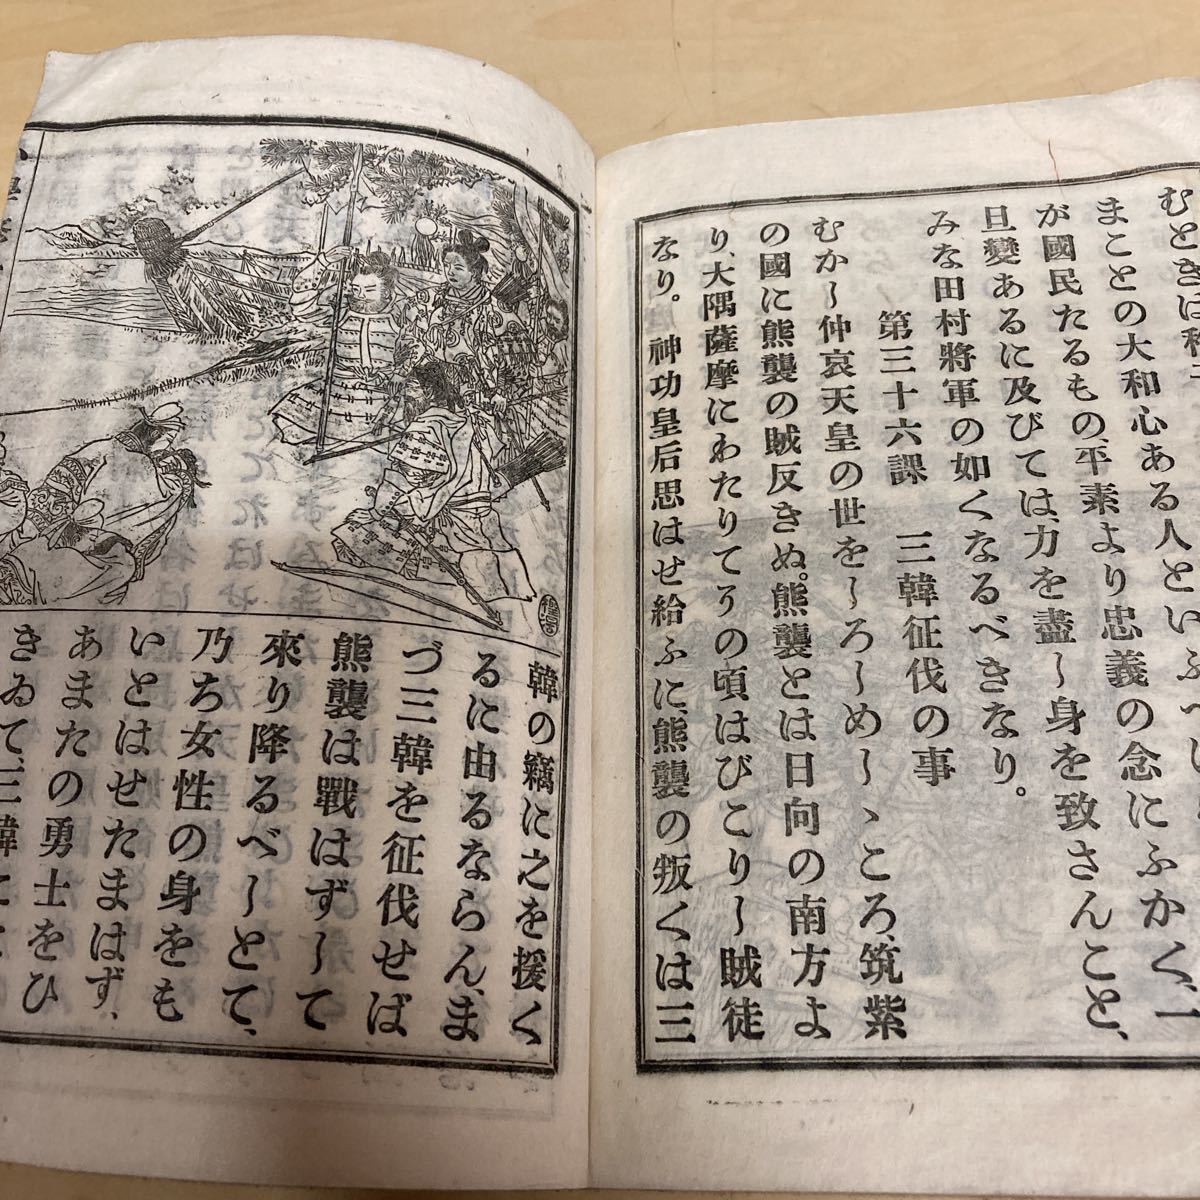 むときは
まことの大和心ある人といふべし
が國民たるもの平素より忠義の念にふかく、一
旦變あるに及びては、力を盡し身を致さんこと、
みな田村將軍の如くなるべきなり。
第三十六課　三韓征伐の事
むかし仲哀天皇の世をしろしめしゝころ、筑紫
の國に熊襲の賊反きぬ。熊襲とは日向の南方よ
り、大隅薩摩にわたりてその頃はびこりし賊徒
なり。神功皇后思はせ給ふに、熊襲の叛くは三
韓の竊に之を援く
るに由るならん、ま
づ三韓を征伐せば
熊襲は戰はずして
來り降るべしとて、
乃ち女性の身をも
いとはせたまはず、
あまたの勇士をひ
きゐて、三韓に